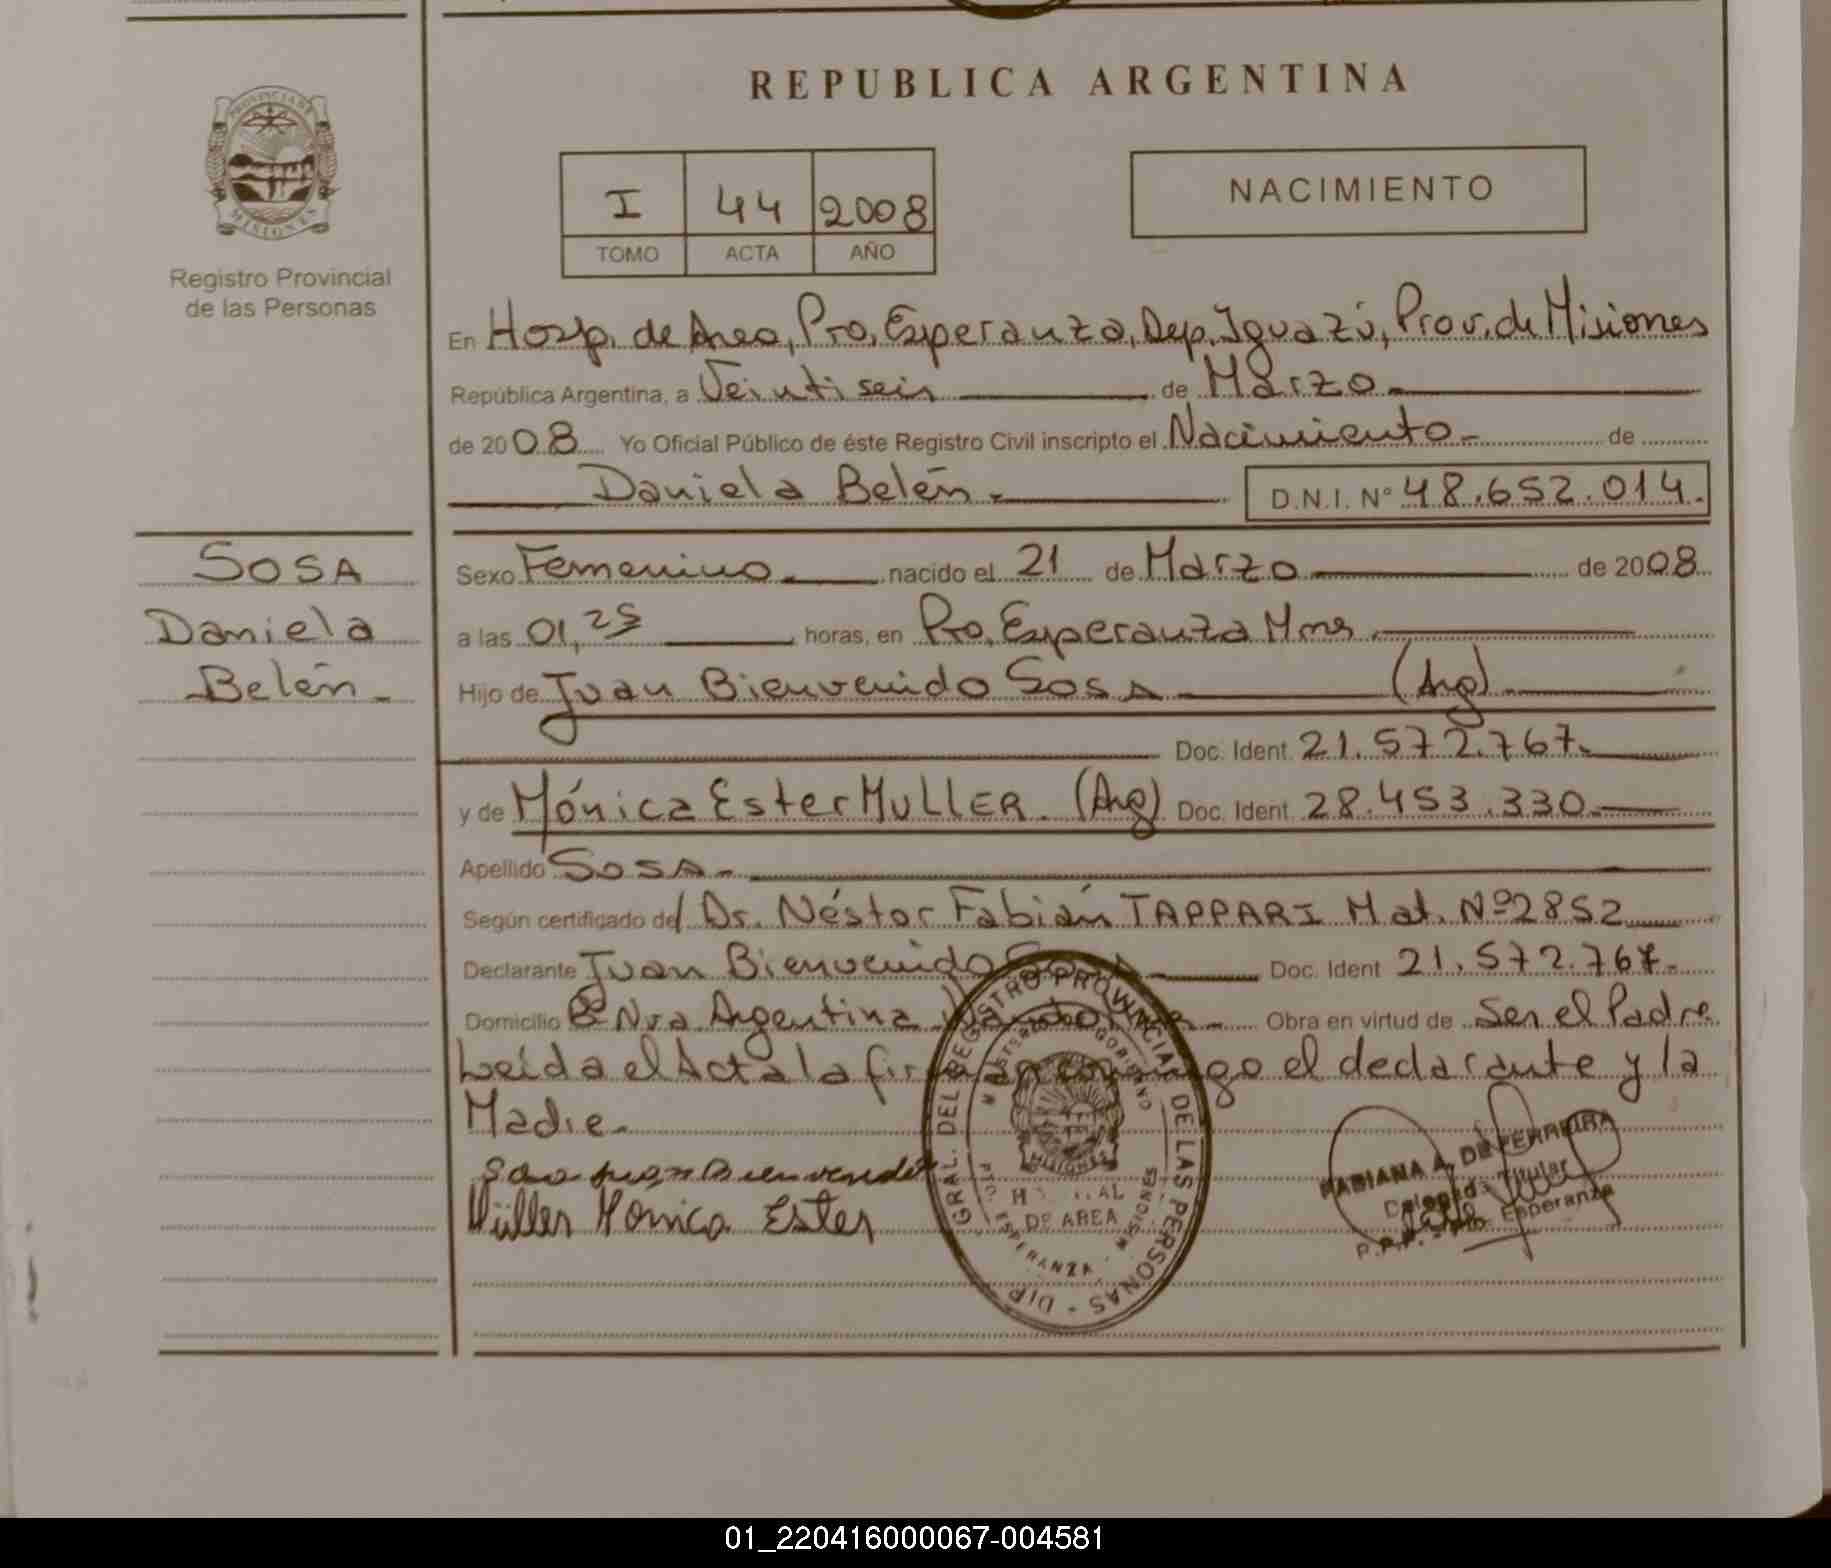 REPUBLICA ARGENTINA
PROVINCIA DE
MISIONES
Registro Provincial
de las Personas
I 44 2008
TOMO ACTA AÑO
NACIMIENTO
En Hosp. de Area, Pto. Esperanza, Dep. Iguazú, Prov. de Misiones
República Argentina, a Veintiseis de Marzo
de 2008 Yo Oficial Público de éste Registro Civil inscripto el Nacimiento de
Daniela Belén D.N.I. N° 48.652.014.
SOSA
Daniela
Belén
Sexo Femenino nacido el 21 de Marzo de 2008
a las 01,25 horas, en Pto. Esperanza Mnes
Hijo de Juan Bienvenido SOSA (Arg)
Doc. Ident. 21.572.767.
y de Mónica Ester MULLER. (Arg) Doc. Ident. 28.453.330.
Apellido SOSA.
Según certificado de/ Dr. Néstor Fabián TAPPARI Mat. Nº 2852
Declarante Juan Bienvenido Sosa Doc. Ident 21.572.767.
Domicilio Bº Nva Argentina Obra en virtud de Ser el Padre
Leída el Acta la firman conmigo el declarante y la
Madre.
Sosa Juan Bienvenido
Müller Monica Ester
DIR. GRAL. DEL REGISTRO PROVINCIAL DE LAS PERSONAS
MINISTERIO DE GOBIERNO
MISIONES
HOSPITAL
DE AREA
PTO. ESPERANZA - MISIONES
FABIANA A. DE FERREIRA
Delegada Titular
R.P.P. - Pto. Esperanza
01_220416000067-004581